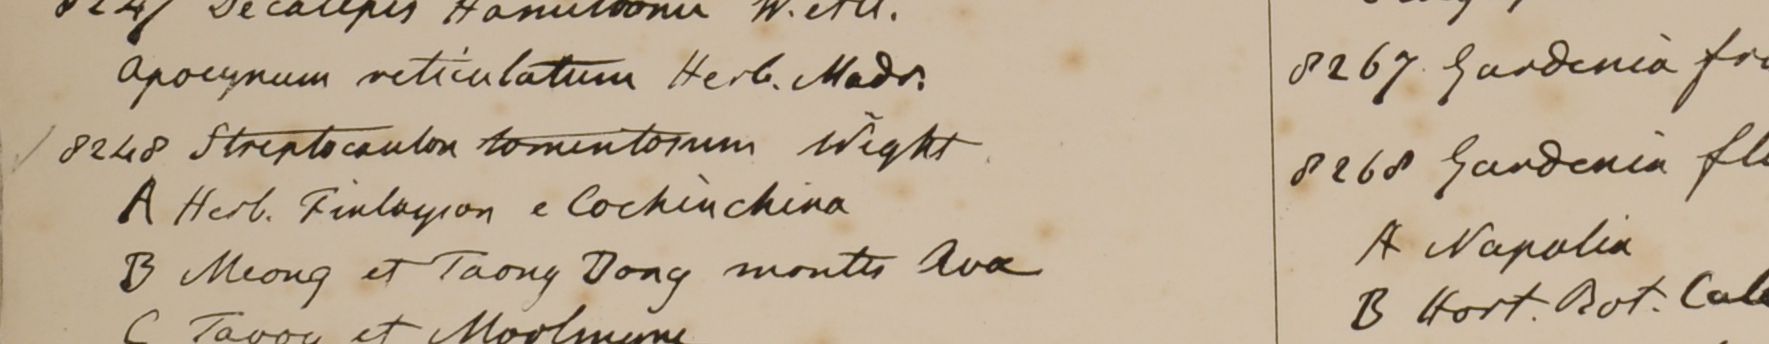 8247 Decalepis Hamiltonii W. et A.
Apocynum reticulatum Herb. Madr.
8248 Streptocaulon tomentosum Wight
A Herb. Finlayson e Cochinchina
B Meong et Taong Dong montes Ava
C Tavoy et Moolmyne
8267 Gardenia
8268 Gardenia
A Napalia
B Hort. Bot. Calc